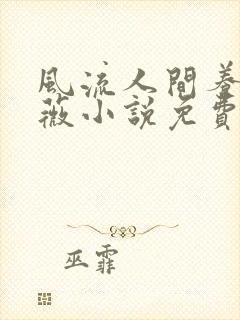 風流人間養
薇小說免費
巫霏